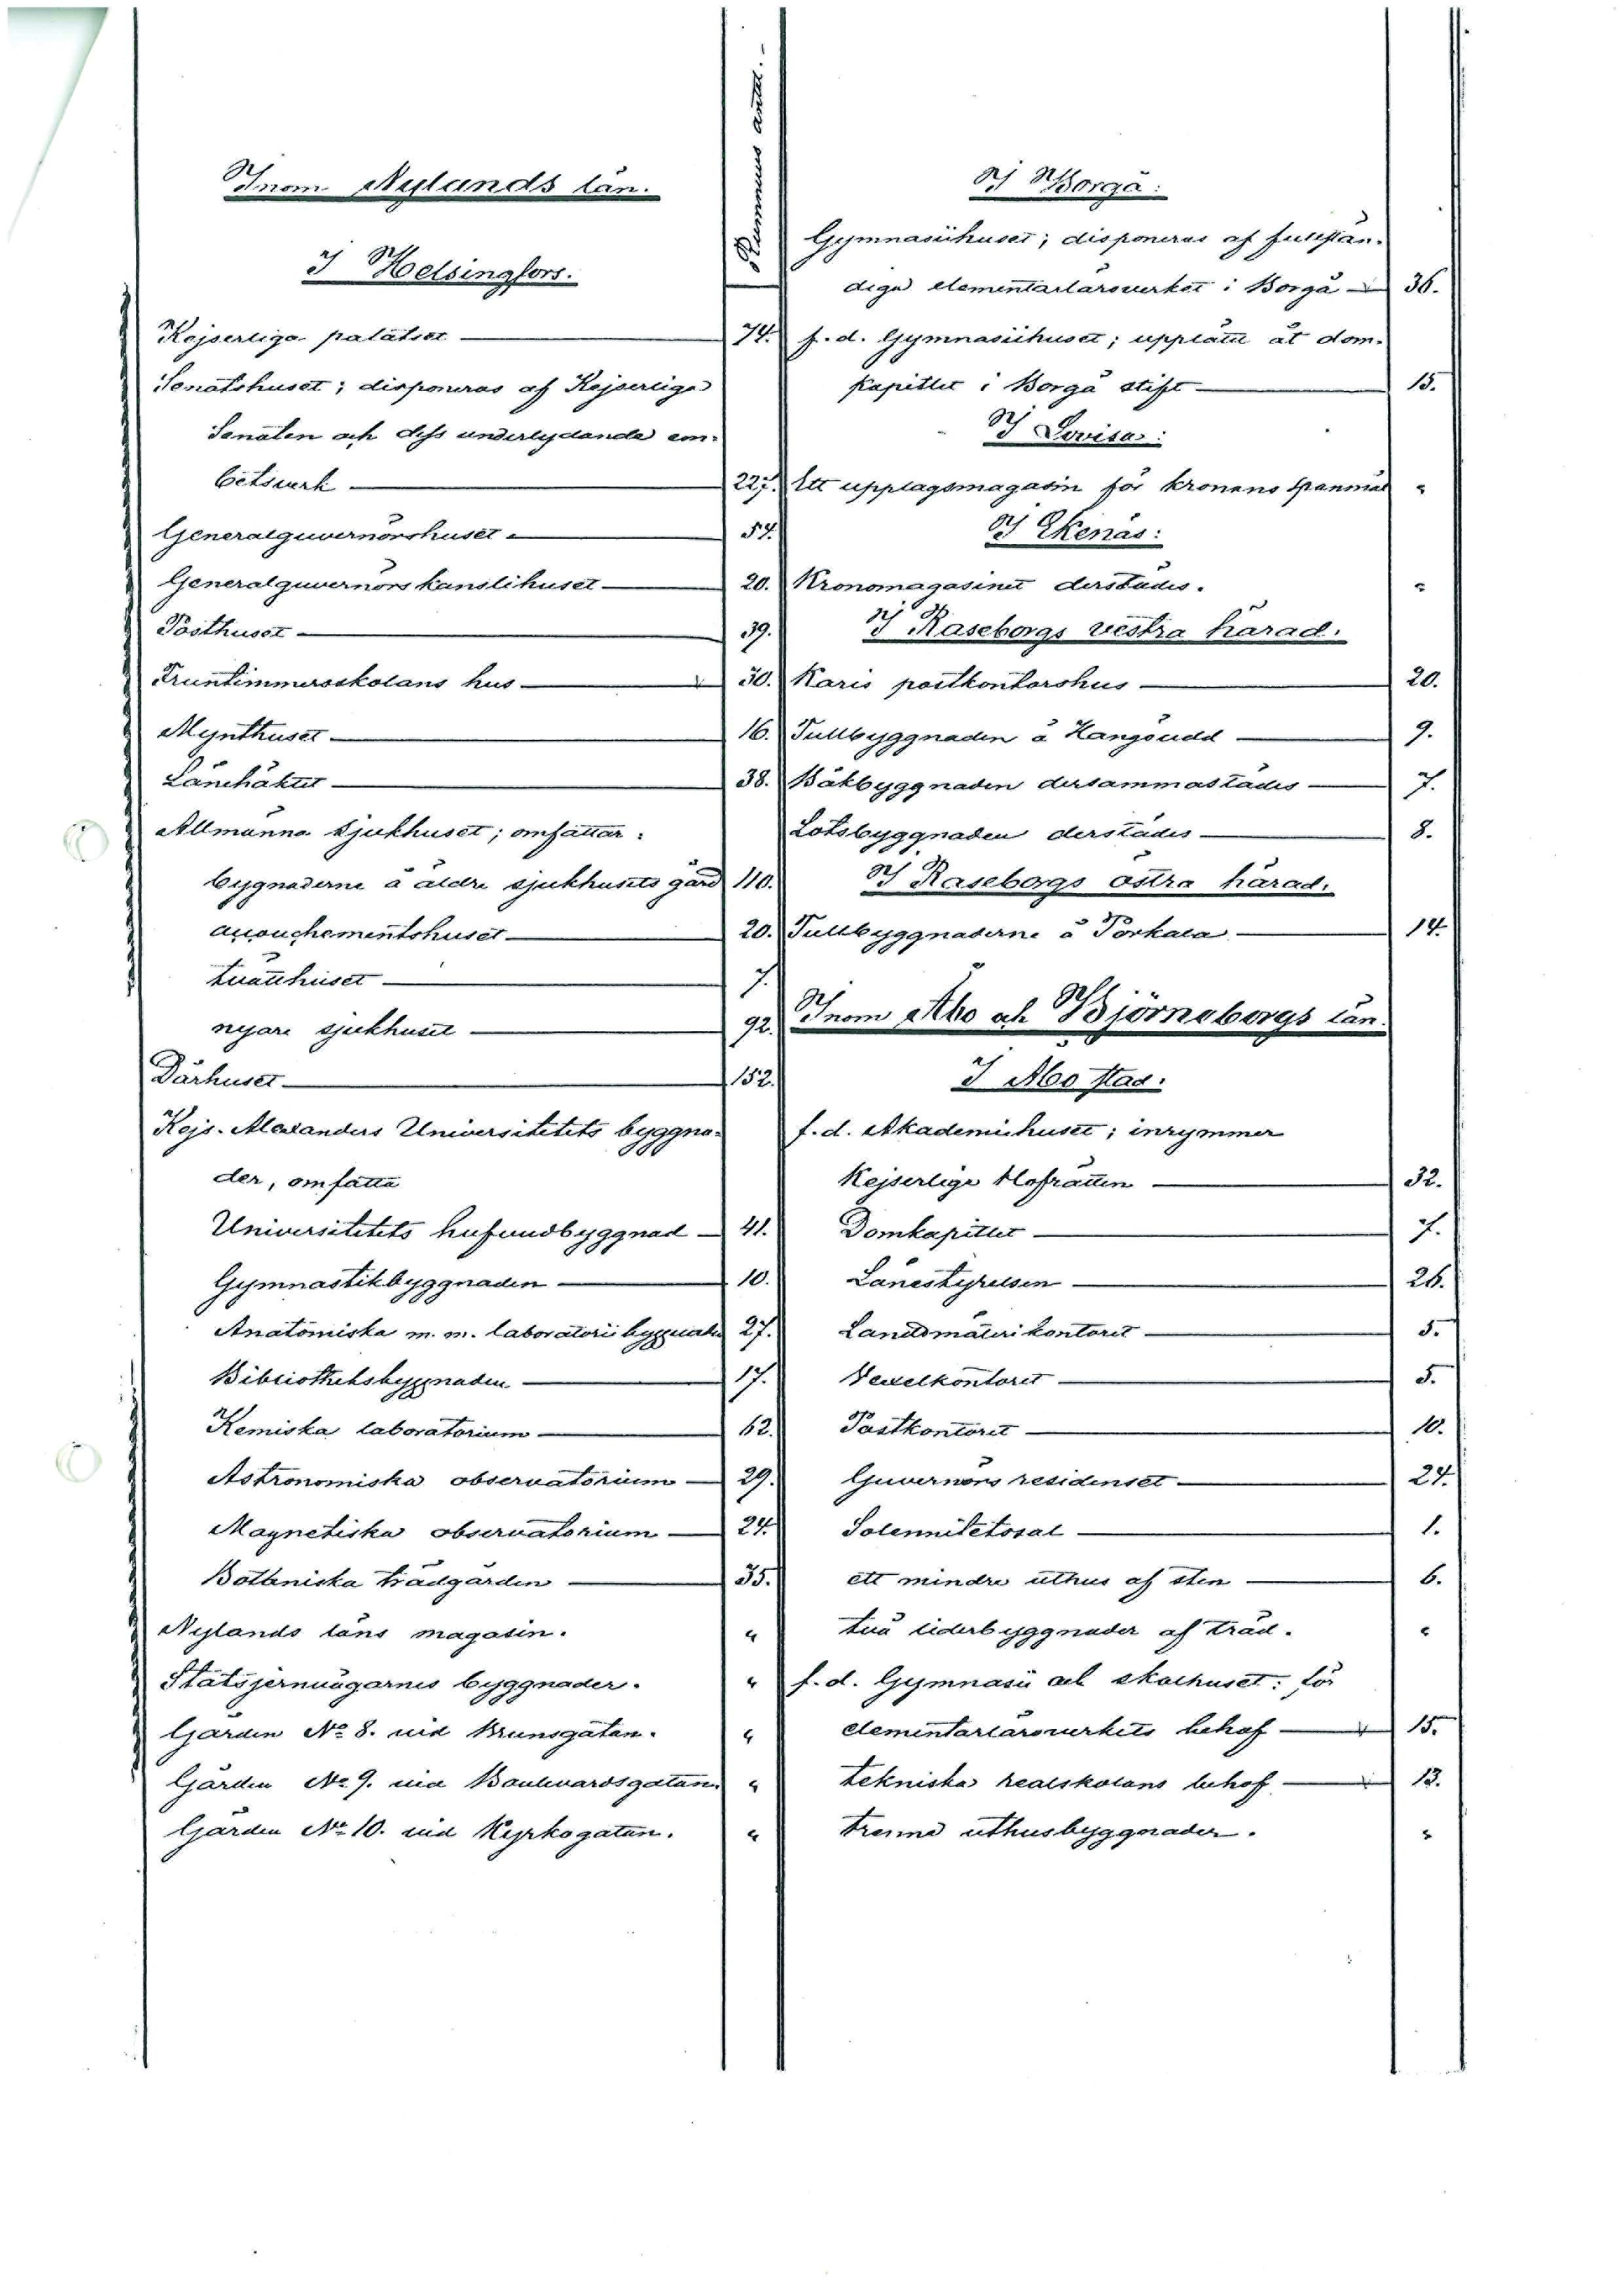 Rummens antal.
Inom Nylands län.
I Helsingfors.
Kejserliga palatset 74.
Senatshuset; disponeras af Kejserliga
Senaten och dess underlydande em-
betsverk 227.
Generalguvernörshuset 54.
Generalguvernörs kanslihuset 20.
Posthuset 39.
Fruntimmersskolans hus 30.
Mynthuset 16.
Länehäktet 38.
Allmänna sjukhuset; omfattar:
bygnaderne å äldre sjukhusets gård 110.
accouchementshuset 20.
tvätthuset 7.
nyare sjukhuset 92.
Dårhuset 152.
Kejs. Alexanders Universitetets byggna-
der, omfatta
Universitetets hufvudbyggnad 41.
Gymnastikbyggnaden 10.
Anatomiska m. m. laboratorii byggnaden 27.
Bibliotheksbyggnaden 17.
Kemiska laboratorium 62.
Astronomiska observatorium 29.
Magnetiska observatorium 24.
Botaniska trädgården 35.
Nylands läns magasin. "
Statsjernvägarnes byggnader. "
Gården No 8. vid Brunsgatan. "
Gården No 9. vid Boulevardsgatan "
Gården No 10. vid Kyrkogatan. "
I Borgå:
Gymnasiihuset; disponeras af fullstän-
diga elementarläroverket i Borgå 36.
f. d. Gymnasiihuset; upplåtet åt dom-
kapitlet i Borgå stift 15.
I Lovisa:
Ett upplagsmagasin för kronans spanmål "
I Ekenäs:
Kronomagasinet derstädes. "
I Raseborgs vestra härad.
Karis postkontorshus 20.
Tullbyggnaden å Hangöudd 9.
Båkbyggnaden dersammastädes 7.
Lotsbyggnaden derstädes 8.
I Raseborgs östra härad.
Tullbyggnaderne å Porkala 14.
Inom Åbo och Björneborgs län.
I Åbo stad.
f. d. Akademiihuset; inrymmer
Kejserliga Hofrätten 32.
Domkapitlet 7.
Länestyrelsen 26.
Landtmäterikontoret 5.
Vexelkontoret 5.
Postkontoret 10.
Guvernörs residenset 24.
Solennitetssal 1.
ett mindre uthus af sten 6.
två liderbyggnader af träd. "
f. d. Gymnasii och skolhuset: för
elementarläroverkets behof 15.
tekniska realskolans behof 13.
trenne uthusbyggnader. "